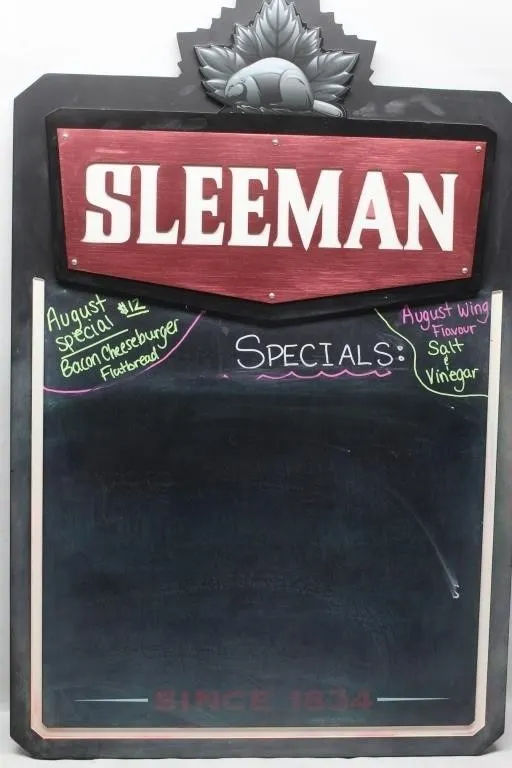 SLEEMAN
August $12
Special
Bacon Cheeseburger
Flatbread
SPECIALS:
August Wing
Flavour
Salt
&
Vinegar
SINCE 1834